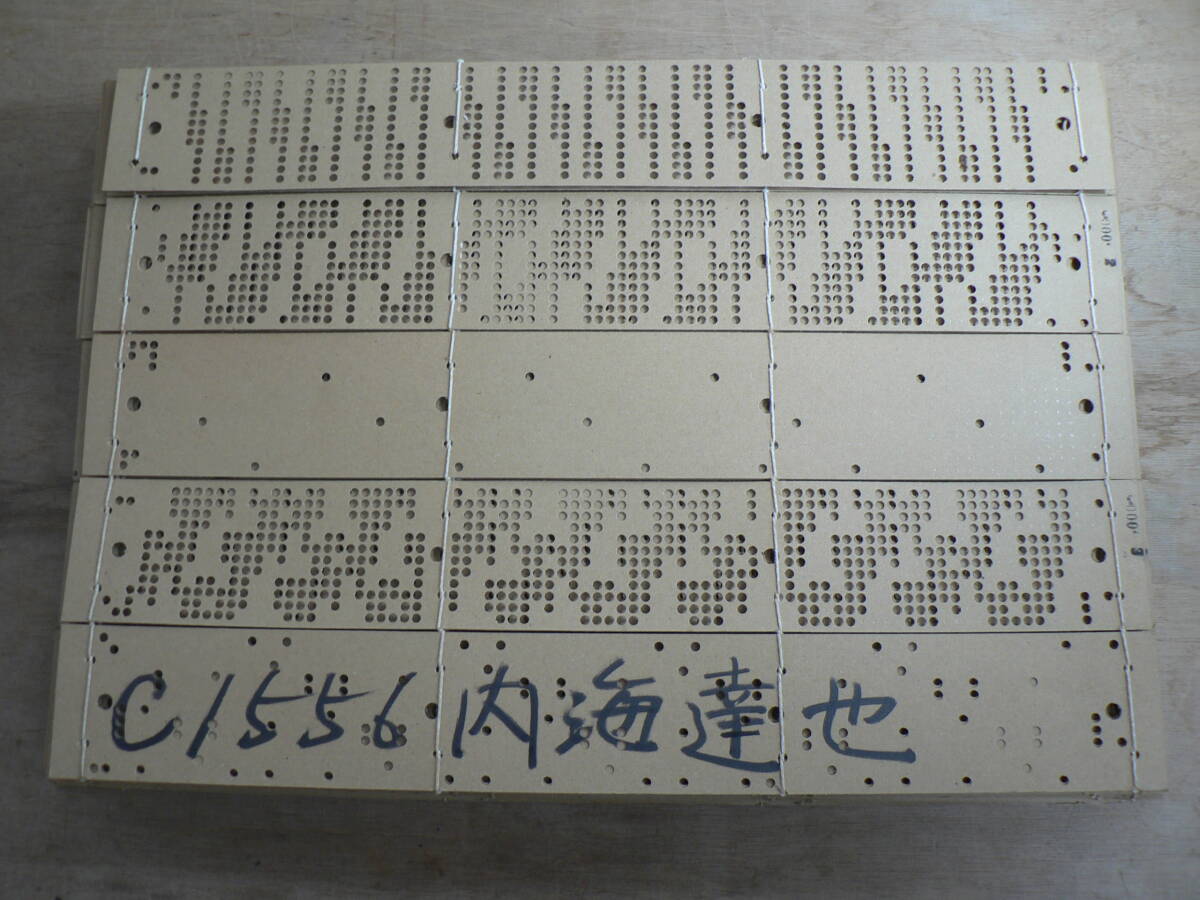 C1556 内海達也